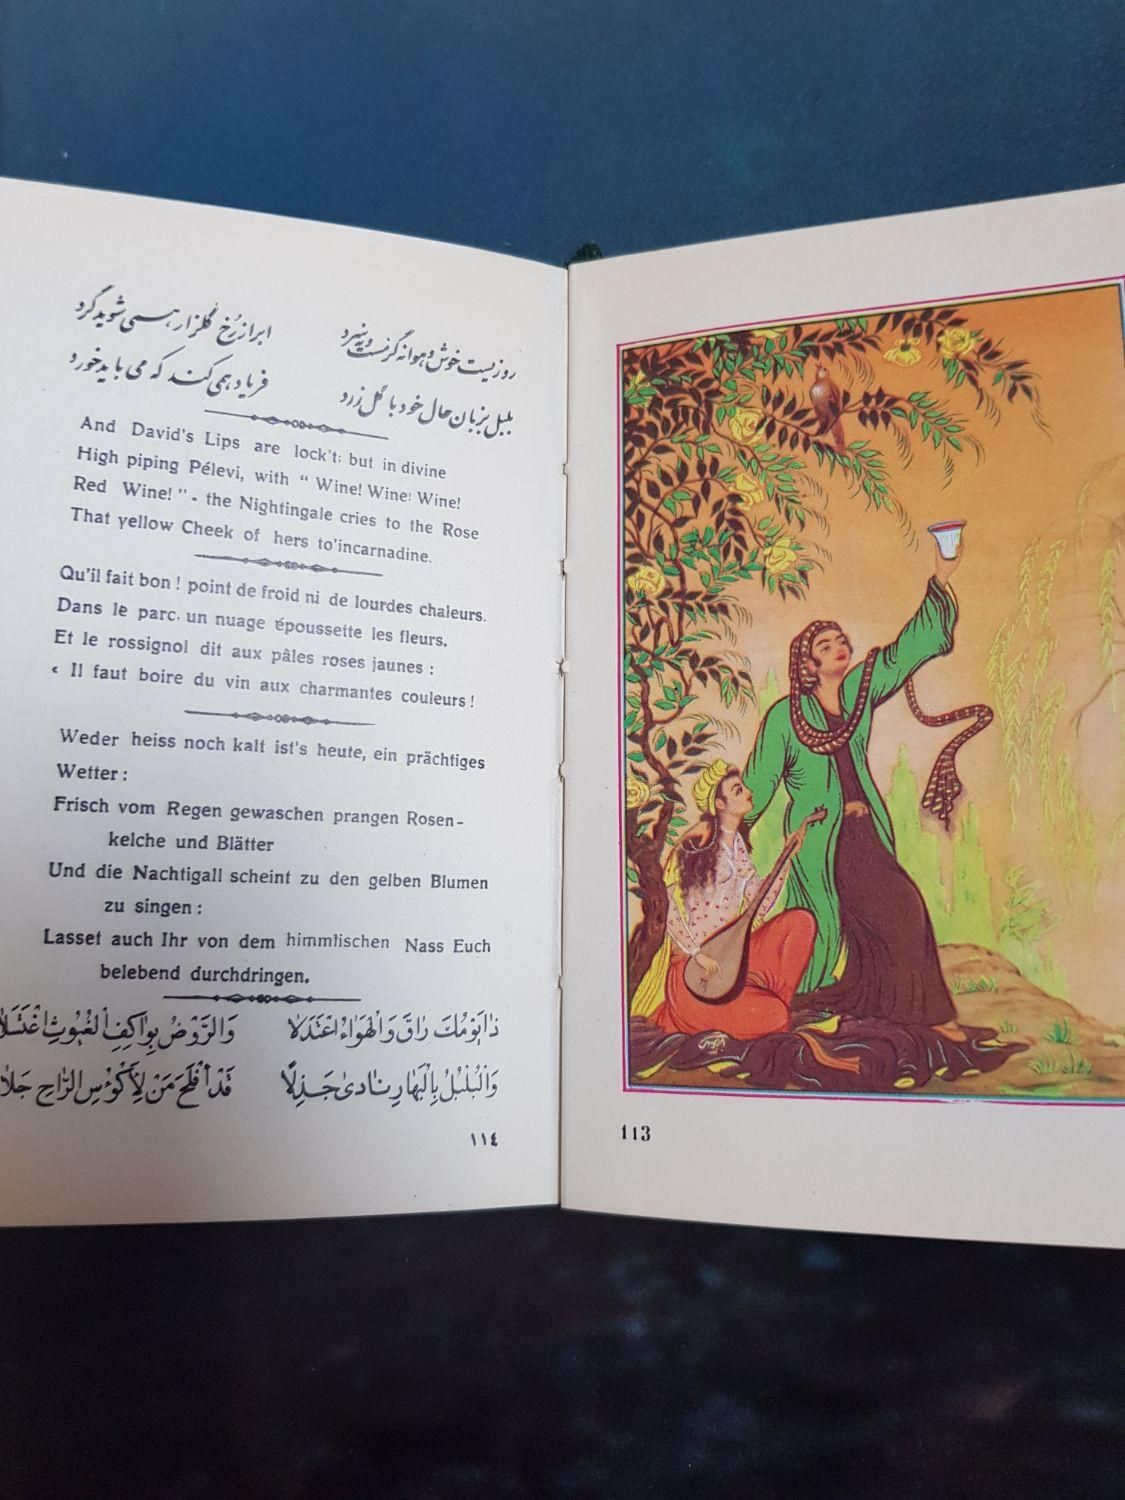 روزیست خوش و هوا نه گرمست و نه سرد
ابر از رخ گلزار همی شوید گرد
بلبل بزبان حال خود با گل زرد
فریاد همی کند که می باید خورد
And David's Lips are lock't; but in divine
High piping Pélevi, with " Wine! Wine! Wine!
Red Wine! " - the Nightingale cries to the Rose
That yellow Cheek of hers to'incarnadine.
Qu'il fait bon ! point de froid ni de lourdes chaleurs.
Dans le parc. un nuage époussette les fleurs.
Et le rossignol dit aux pâles roses jaunes :
‹ Il faut boire du vin aux charmantes couleurs !
Weder heiss noch kalt ist's heute, ein prächtiges
Wetter :
Frisch vom Regen gewaschen prangen Rosen-
kelche und Blätter
Und die Nachtigall scheint zu den gelben Blumen
zu singen :
Lasset auch Ihr von dem himmlischen Nass Euch
belebend durchdringen.
ذایَوْمُكَ رٰاقَ وَالْهَوَاءُ اعْتَدَلاٰ
وَالرَّوْضُ بِوٰاكِفِ الْغُيُوثِ اغْتَسَلاٰ
وَالْبُلْبُلُ بِالْبَهٰارِ نٰادىٰ جَذِلاً
قَدْ أَفْلَحَ مَنْ لِأَكْؤُسِ الرّٰاحِ جَلاٰ
١١٤
113